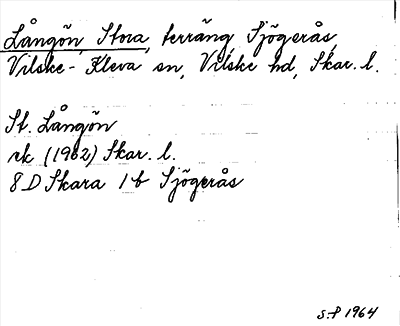 Långön, Stora, terräng Sjögerås,
Vilske-Kleva sn, Vilske hd, Skar. l.
St. Långön
ek (1962) Skar. l.
8D Skara 1b Sjögerås
S:P 1964